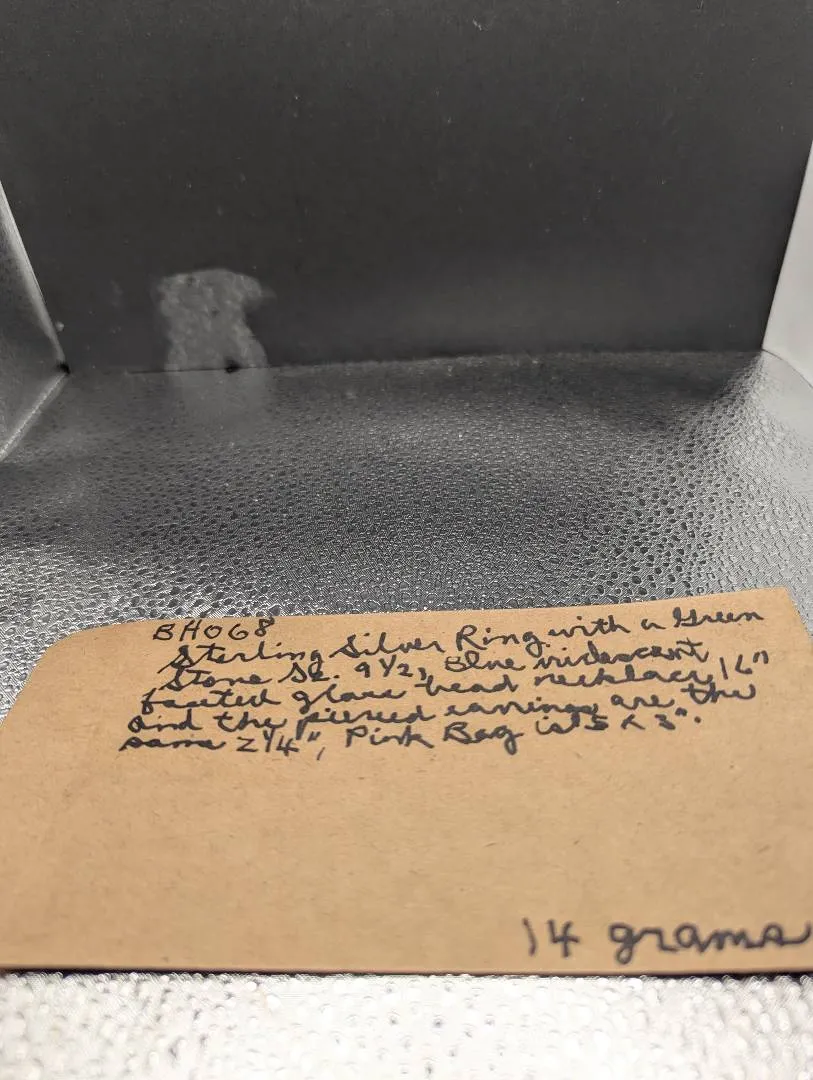 BH068
Sterling Silver Ring with a Green
Stone Sz. 9 1/2, Blue iridescent
faceted glass bead necklace 16"
and the pierced earrings are the
same 2 1/4", Pink Bag is 5 x 3".
14 grams